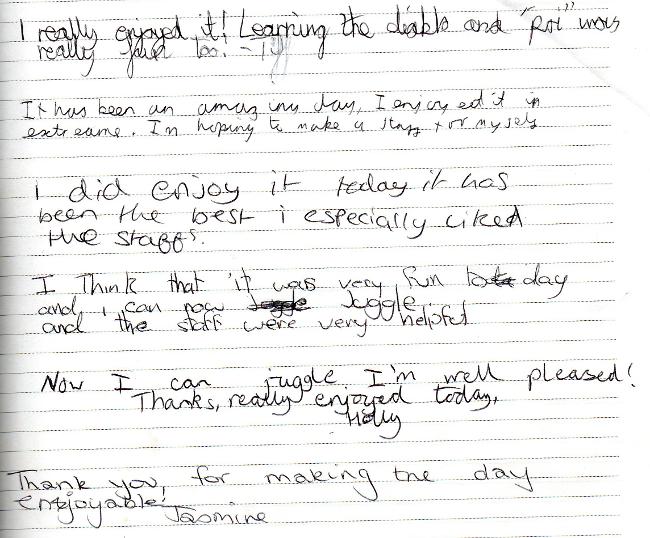 I really enjoyed it! Learning the diablo and "Poi" was
really fun too! :-)
It has been an amazing day, I enjoyed it in
extreame. Im hoping to make a staff for myself
I did enjoy it today it has
been the best i especially liked
the staffs.
I Think that it was very fun to day
and i can now Juggle
and the staff were very helpful
Now I can juggle. I'm well pleased!
Thanks, really enjoyed today,
Holly
Thank you, for making the day
enjoyable!
Jasmine